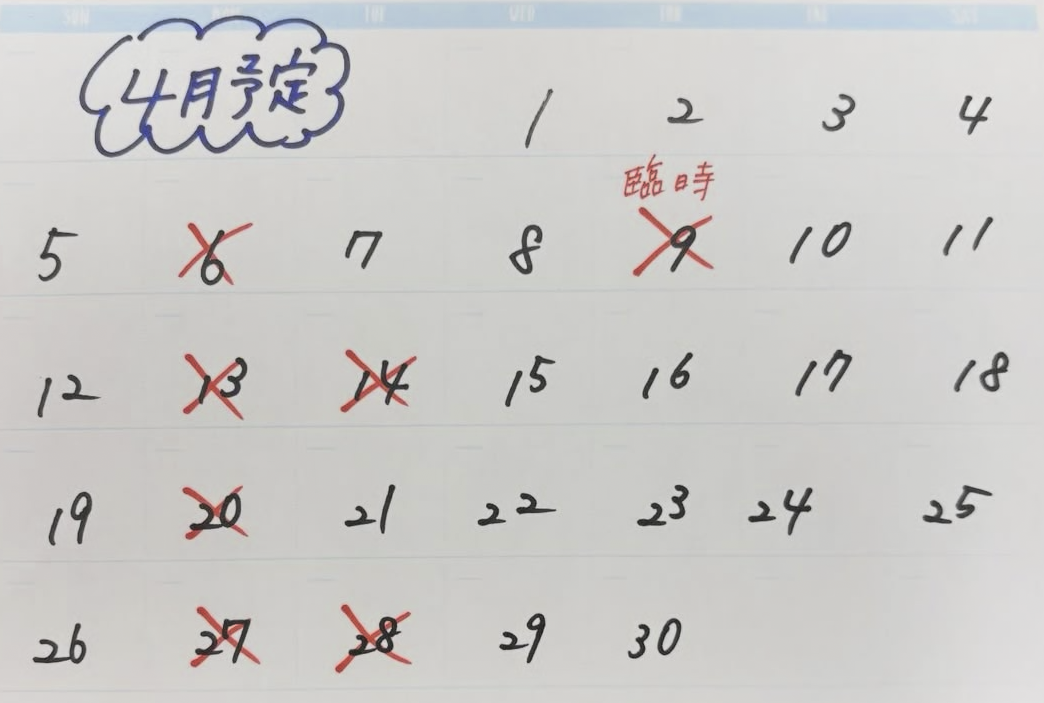 SUN MON TUE WED THU FRI SAT
4月予定
1 2 3 4
臨時
5 6 7 8 9 10 11
12 13 14 15 16 17 18
19 20 21 22 23 24 25
26 27 28 29 30